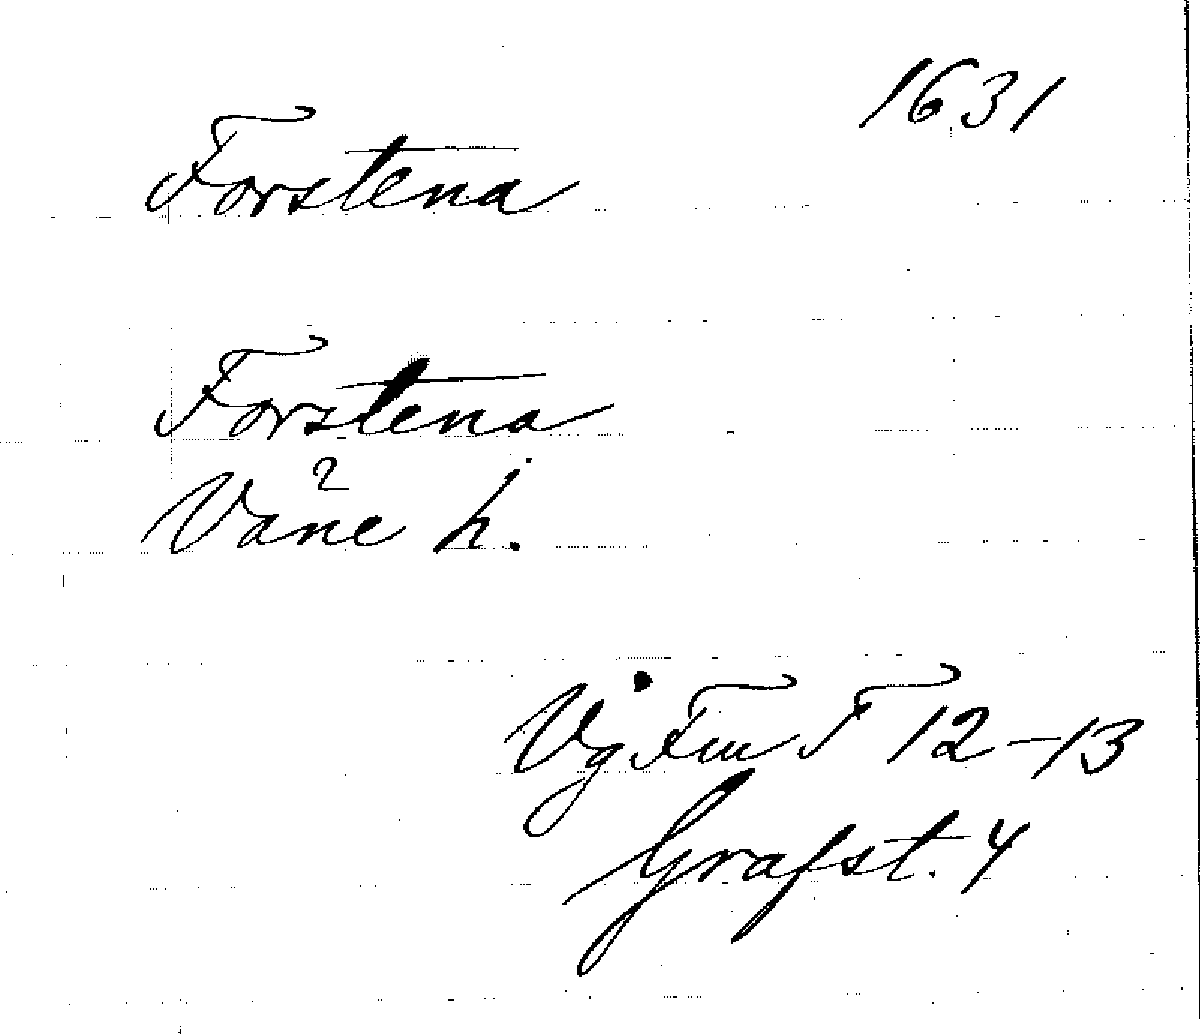 1631
Forstena
Forstena
2
Väne h.
Vg Fm F 12-13
Grafst. 4